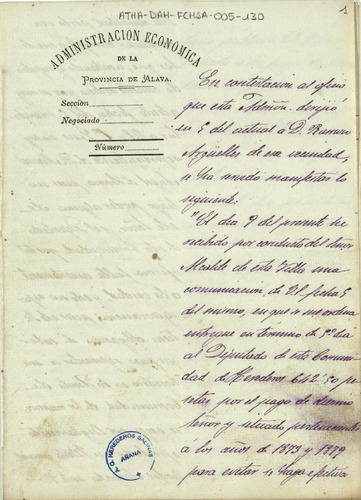 ATHA-DAH-FCHSA-005-130
1
ADMINISTRACION ECONOMICA
DE LA
PROVINCIA DE ALAVA.
Seccion
Negociado
Número
En contestacion al oficio
que esta Admón. dirijió
en 5 del actual a D. Ramon
Argüelles de esa vecindad,
se ha servido manifestar lo
siguiente:
"El dia 9 del presente he
recibido por conducto del Señor
Alcalde de esta Villa una
comunicacion de V.S. fecha 5
del mismo, en que se me ordena
entregue en termino de 3º dia
al Diputado de esta Comunidad
de Herederos 642'50
pesetas, por el pago de
y situado, pertenecientes
á los años de 1873 y 1879
para evitar se haga efectiva
T. G. HEREDEROS SALINAS
AÑANA